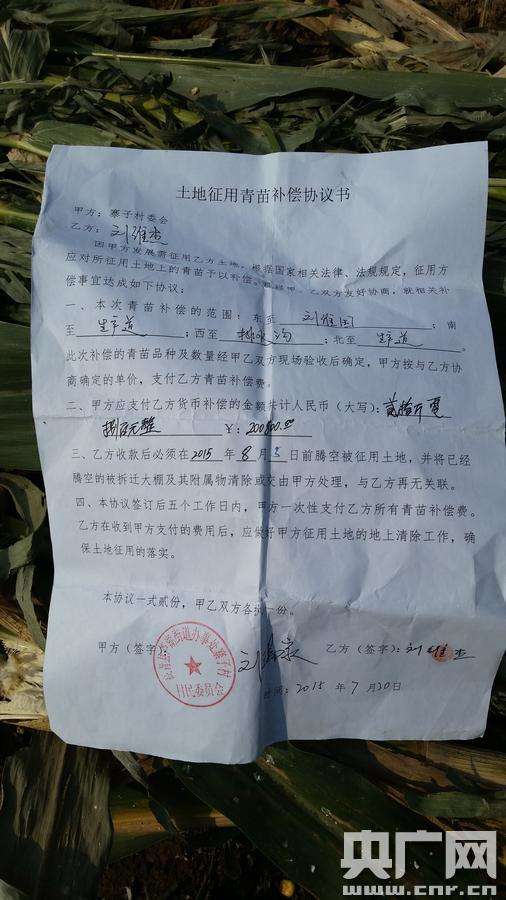 土地征用青苗补偿协议书
甲方：寨子村委会
乙方：刘维杰
因甲方发展需征用乙方土地，根据国家相关法律、法规规定，征用方
应对所征用土地上的青苗予以补偿。甲乙双方友好协商，就相关补
偿事宜达成如下协议：
一、本次青苗补偿的范围：东至 刘维国；南
至 生产道；西至 排水沟；北至 生产道。
此次补偿的青苗品种及数量经甲乙双方现场验收后确定，甲方按与乙方协
商确定的单价，支付乙方青苗补偿费。
二、甲方应支付乙方货币补偿的金额共计人民币（大写）：贰拾万零
捌百元整 ￥：200800.00
三、乙方收款后必须在2015年8月8日前腾空被征用土地，并将已经
腾空的被拆迁大棚及其附属物清除或交由甲方处理，与乙方再无关联。
四、本协议签订后五个工作日内，甲方一次性支付乙方所有青苗补偿费。
乙方在收到甲方支付的费用后，应做好甲方征用土地的地上清除工作，确
保土地征用的落实。
本协议一式贰份，甲乙双方各执一份。
甲方（签字）： 乙方（签字）：刘维杰
时间：2015年7月30日
央广网
www.cnr.cn